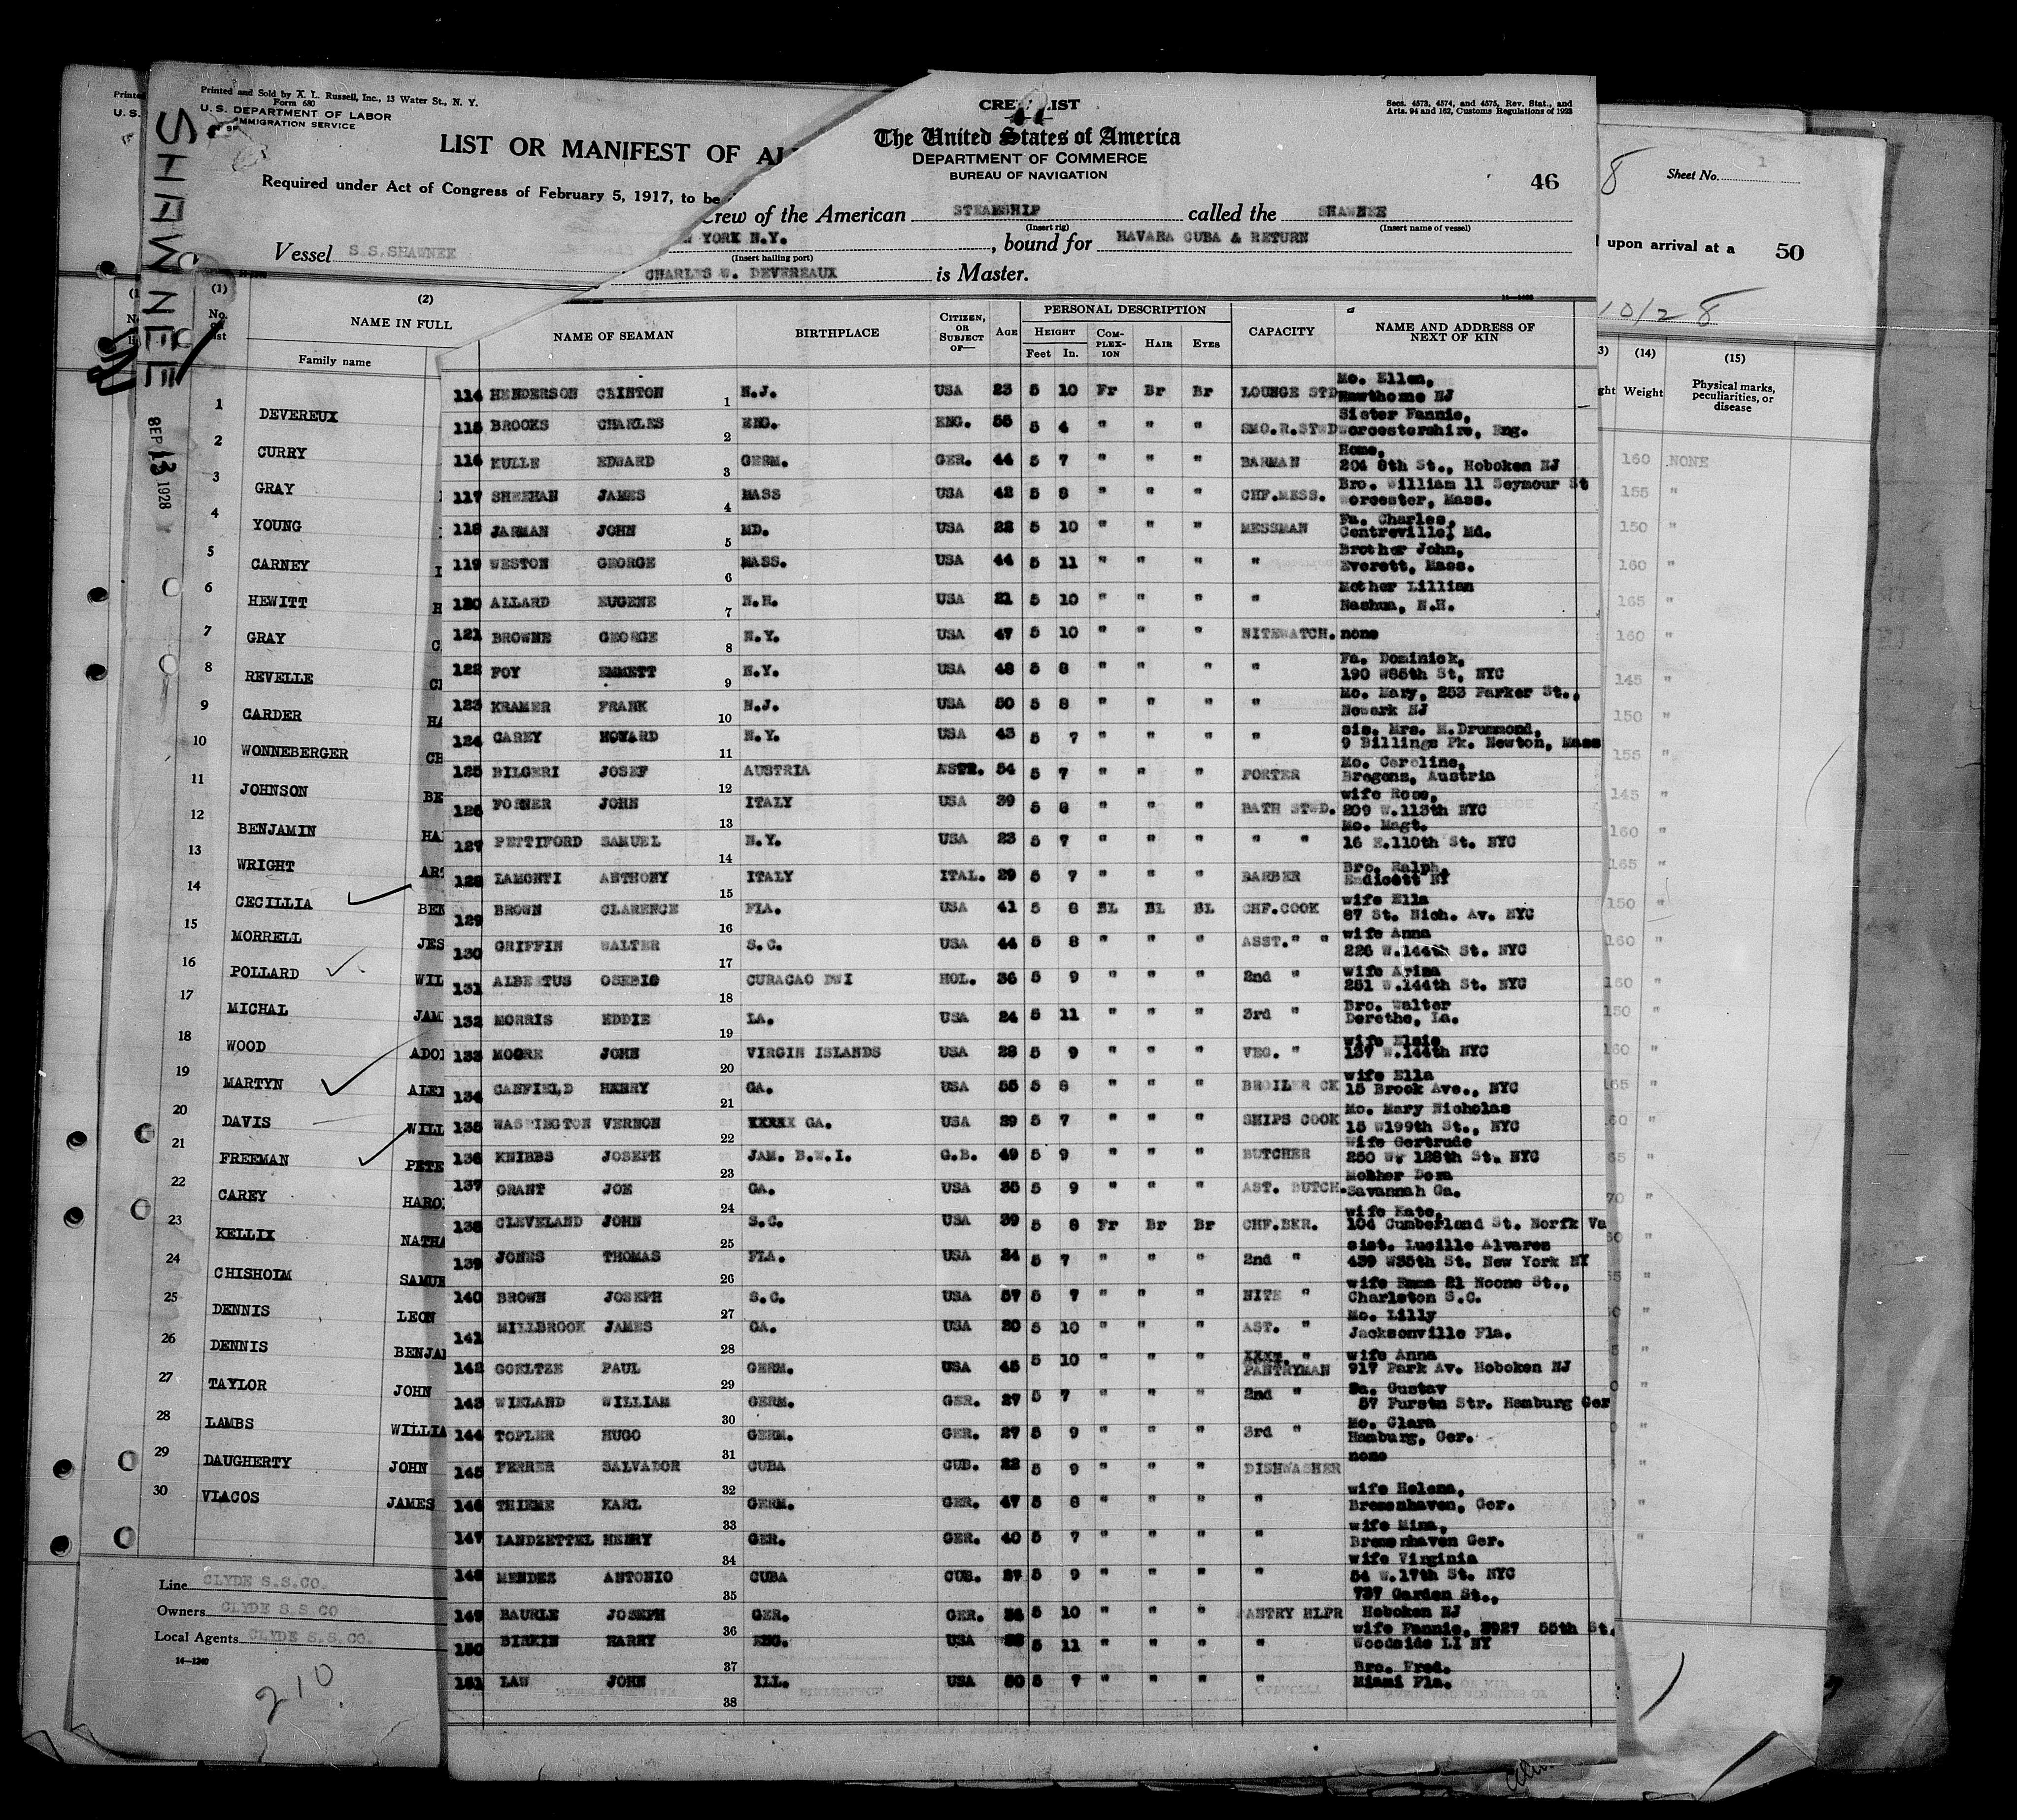 Printed and Sold by X. L. Russell, Inc., 13 Water St., N. Y.
Form 680
U. S. DEPARTMENT OF LABOR
IMMIGRATION SERVICE
LIST OR MANIFEST OF
Required under Act of Congress of February 5, 1917, to be
Vessel S.S.SHAWNEE
SHAWNEE
SEP 13 1928
(1) (2)
No. NAME IN FULL
Family name
1 DEVEREUX
2 CURRY
3 GRAY
4 YOUNG
5 CARNEY
6 HEWITT
7 GRAY
8 REVELLE
9 CARDER
10 WONNEBERGER
11 JOHNSON
12 BENJAMIN
13 WRIGHT
14 CECILLIA
15 MORRELL
16 POLLARD
17 MICHAL
18 WOOD
19 MARTYN
20 DAVIS
21 FREEMAN
22 CAREY
23 KELLIX
24 CHISHOIM
25 DENNIS LEON
26 DENNIS
27 TAYLOR JOHN
28 LAMBS
29 DAUGHERTY JOHN
30 VLACOS JAMES
Line CLYDE S.S.CO.
Owners CLYDE S.S.CO
Local Agents CLYDE S.S.CO.
14—1240
210
CREW LIST
Secs. 4573, 4574, and 4575, Rev. Stat., and
Arts. 94 and 162, Customs Regulations of 1923
The United States of America
DEPARTMENT OF COMMERCE
BUREAU OF NAVIGATION
46
Crew of the American STEAMSHIP called the SHAWNEE
(Insert rig) (Insert name of vessel)
YORK N.Y., bound for HAVARA CUBA & RETURN
(Insert hailing port)
CHARLES W. DEVEREAUX is Master.
NAME OF SEAMAN BIRTHPLACE CITIZEN, OR SUBJECT OF— AGE PERSONAL DESCRIPTION CAPACITY NAME AND ADDRESS OF NEXT OF KIN
HEIGHT COMPLEXION HAIR EYES
Feet In.
114 HENDERSON CLINTON 1 N.J. USA 23 5 10 Fr Br Br LOUNGE STD Mo. Ellen, Hawthorne NJ
115 BROOKS CHARLES 2 ENG. ENG. 55 5 4 " " " SMO.R.STWD Sister Fannie, Worcestershire, Eng.
116 KULLE EDWARD 3 GERM. GER. 44 5 7 " " " BARMAN Home, 204 8th St., Hoboken NJ
117 SHEEHAN JAMES 4 MASS USA 42 5 8 " " " CHF.MESS. Bro. William 11 Seymour St Worcester, Mass.
118 JARMAN JOHN 5 MD. USA 22 5 10 " " " MESSMAN Fa. Charles, Centreville, Md.
119 WESTON GEORGE 6 MASS. USA 44 5 11 " " " " Brother John, Everett, Mass.
120 ALLARD EUGENE 7 N.H. USA 21 5 10 " " " " Mother Lillian Nashua, N.H.
121 BROWNE GEORGE 8 N.Y. USA 47 5 10 " " " NITEWATCH. none
122 FOY EMMETT 9 N.Y. USA 48 5 8 " " " " Fa. Dominick, 190 W85th St, NYC
123 KRAMER FRANK 10 N.J. USA 50 5 8 " " " " Mo. Mary, 253 Parker St., Newark NJ
124 CAREY HOWARD 11 N.Y. USA 43 5 7 " " " " sis. Mrs. M.Drummond, 9 Billings Pk. Newton, Mass
125 BILGERI JOSEF 12 AUSTRIA 54 5 7 " " " PORTER Mo. Caroline, Bregens, Austria
126 POSNER JOHN 13 ITALY USA 39 5 8 " " " BATH STWD. wife Rose, 209 W.113th NYC
127 PETTIFORD SAMUEL 14 N.Y. USA 23 5 7 " " " " " Mo. Magt. 16 E.110th St. NYC
128 LAMONTI ANTHONY 15 ITALY ITAL. 29 5 7 " " " BARBER Bro. Ralph, Endicott NY
129 BROWN CLARENCE 16 FLA. USA 41 5 8 BL BL BL CHF.COOK wife Ella 87 St. Nich. Av. NYC
130 GRIFFIN WALTER 17 S.C. USA 44 5 8 " " " ASST." " wife Anna 226 W.144th St. NYC
131 ALBERTUS OSEBIO 18 CURACAO DWI HOL. 36 5 9 " " " 2nd " wife Arima 251 W.144th St. NYC
132 MORRIS EDDIE 19 LA. USA 24 5 11 " " " 3rd " Bro. Walter Derethe, La.
133 MOORE JOHN 20 VIRGIN ISLANDS USA 28 5 9 " " " VEG. " wife Elsie 137 W.144th NYC
134 CANFIELD HENRY 21 GA. USA 55 5 8 " " " BROILER CK wife Ella 15 Brook Ave., NYC
135 WASHINGTON VERNON 22 XXXXX GA. USA 29 5 7 " " " SHIPS COOK Mo. Mary Nicholas 15 W199th St., NYC
136 KNIBBS JOSEPH 23 JAM. B.W.I. G.B. 49 5 9 " " " BUTCHER Wife Gertrude 250 W. 128th St. NYC
137 GRANT JOE 24 GA. USA 35 5 9 " " " AST. BUTCH. Mother Dora Savannah Ga.
138 CLEVELAND JOHN 25 S.C. USA 39 5 8 Fr Br Br CHF.BKR. wife Kate, 104 Cumberland St. Norfk Va
139 JONES THOMAS 26 FLA. USA 24 5 7 " " " 2nd " sist. Lucille Alvares 439 W35th St. New York NY
140 BROWN JOSEPH 27 S.C. USA 57 5 7 " " " NITE " wife Emma 21 Noone St., Charleston S.C.
141 MILLBROOK JAMES 28 GA. USA 20 5 10 " " " AST. " Mo. Lilly Jacksonville Fla.
142 GOELTZE PAUL 29 GERM. USA 45 5 10 " " " PANTRYMAN wife Anna 917 Park Av. Hoboken NJ
143 WIELAND WILLIAM 30 GERM. GER. 27 5 7 " " " 2nd " Fa. Gustav 57 Furstn Str. Hamburg Ger
144 TOPLER HUGO 31 GERM. GER. 27 5 9 " " " 3rd " Mo. Clara Hamburg, Ger.
145 FERRER SALVADOR 32 CUBA CUB. 22 5 9 " " " DISHWASHER none
146 THIEME KARL 33 GERM. GER. 47 5 8 " " " " wife Helena, Bremenhaven, Ger.
147 LANDZETTEL HENRY 34 GER. GER. 40 5 7 " " " " wife Mina, Bremenhaven Ger.
148 MENDEZ ANTONIO 35 CUBA CUB. 27 5 9 " " " " wife Virginia 54 W.17th St. NYC
149 BAURLE JOSEPH 36 GER. GER. 5 10 " " " PANTRY HLPR 737 Garden St., Hoboken NJ
150 BIRKIN HARRY 37 ENG. USA 5 11 " " " " wife Fannie, 3927 55th St. Woodside LI NY
151 LAW JOHN 38 ILL. USA 50 5 7 " " " " Bro. Fred. Miami Fla.
8 Sheet No. 1
upon arrival at a 50
10/28
(14) (15)
Weight Physical marks, peculiarities, or disease
160 NONE
155 "
150 "
160 "
165 "
160 "
145 "
150 "
155 "
145 "
160 "
165 "
150 "
160 "
160 "
150 "
160 "